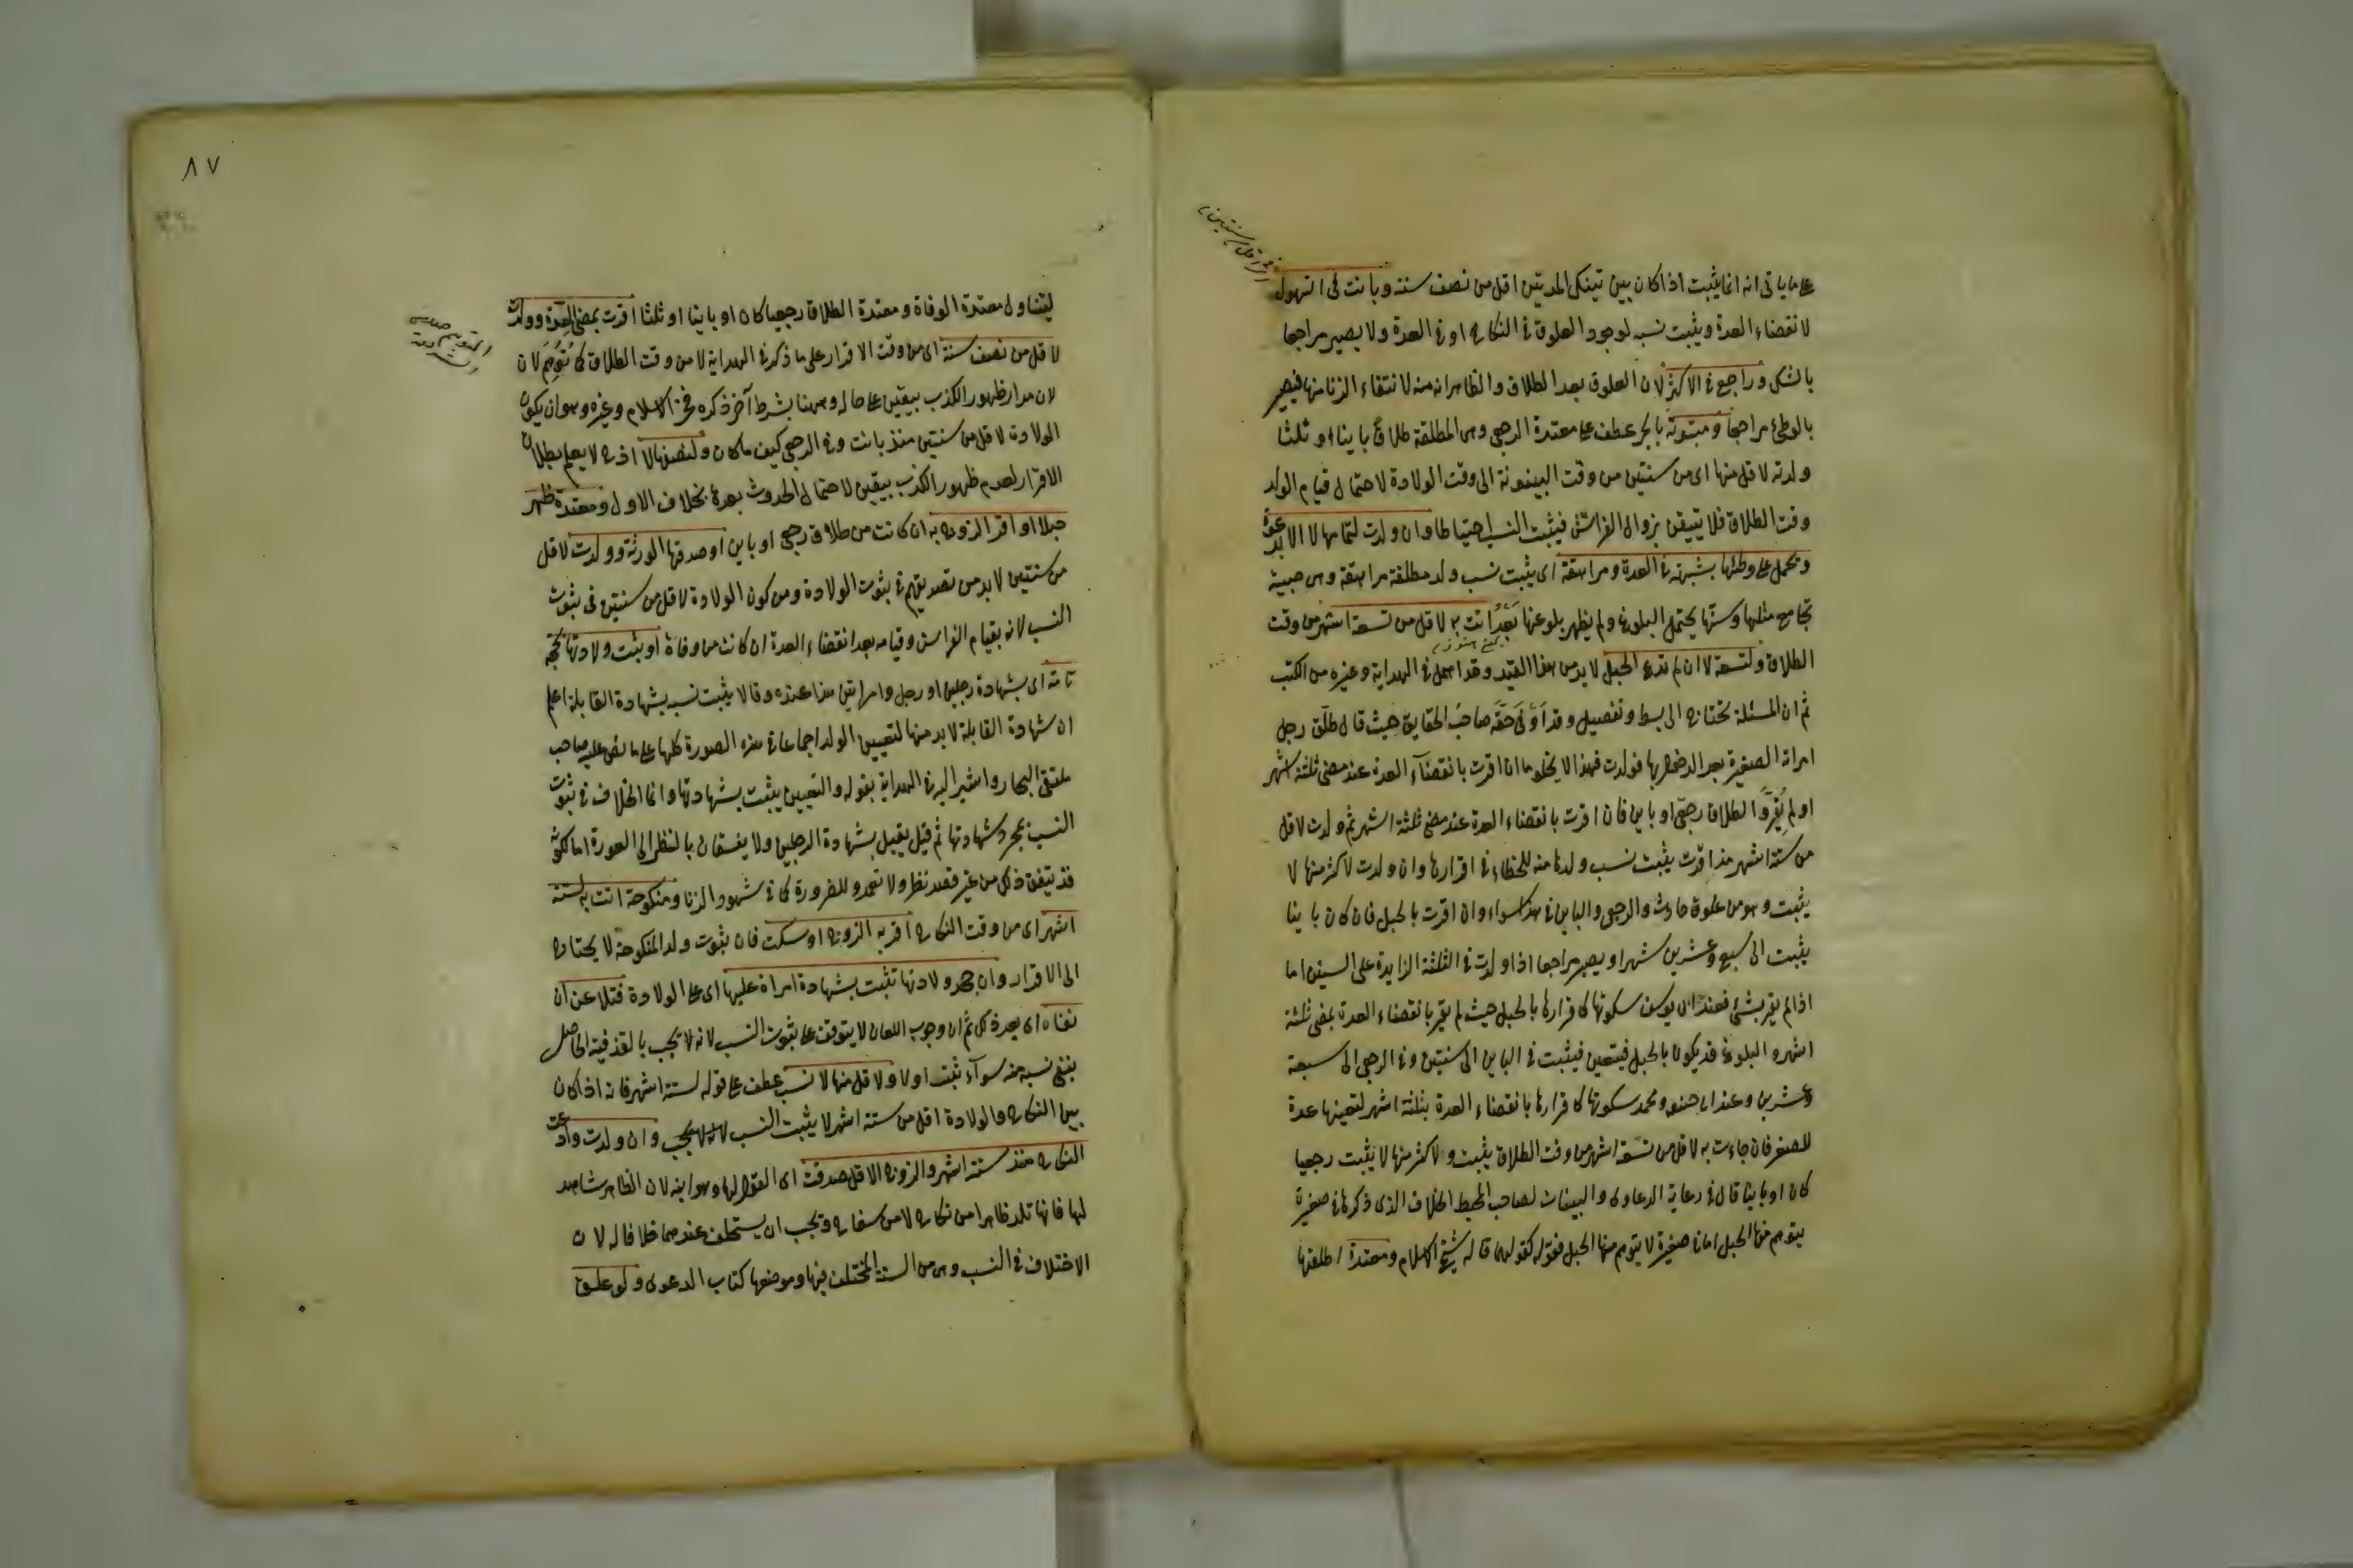 على ما ياتى انه انما يثبت اذا كان بين تينك المدتين اقل من نصف سنة وبانت فى
لانقضاء العدة ويثبت نسبه لوجود العلوق فى النكاح او فى العدة ولا يصير مراجعا
بالشك وراجع فى الاكثر لان العلوق بعد الطلاق والظاهر انه منه لانتفاء الزنا منها فيصير
بالوطئ مراجعا ومبتوتة بالجر عطف على معتدة الرجعى وهى المطلقة طلاقا باينا او ثلثا
ولدته لاقل منها اى من سنتين من وقت البينونة الى وقت الولادة لاحتمال قيام الولد
وقت الطلاق فلا يتيقن بزوال الفراش فيثبت النسب احتياطا وان ولدت لتمامها لا الا بدعوة
وتحمل على وطئها بشبهة فى العدة ومراهقة اى يثبت نسب ولد مطلقة مراهقة وهى صبية
تجامع مثلها وسنها يحتمل البلوغ ولم يظهر بلوغها بعد اتت به لاقل من تسعة اشهر من وقت
الطلاق ولتسعة لا ان لم تدع الحبل لا بد من هذا القيد وقد اهمل فى الهداية وغيره من الكتب
ثم ان المسئلة تحتاج الى بسط وتفصيل وقد اوفى حقه صاحب الحقايق حيث قال طلق رجل
امراته الصغيرة بعد الدخول بها فولدت فهذا لا يخلو اما ان اقرت بانقضاء العدة عند مضى ثلثة اشهر
او لم تقر والطلاق رجعى او باين فان اقرت بانقضاء العدة عند مضى ثلثة اشهر ثم ولدت لاقل
من ستة اشهر مذ اقرت يثبت نسب ولدها منه للخطاء فى اقرارها وان ولدت لاكثر منها لا
يثبت وهو من علوق حادث والرجعى والباين فى هذا سواء وان اقرت بالحبل فان كان باينا
يثبت الى سبع وعشرين شهرا ويصير مراجعا اذا ولدت فى الثلثة الزايدة على السنتين اما
اذا لم يقر بشئ فعند ابى يوسف سكوتها كاقرارها بالحبل حيث لم يقر بانقضاء العدة بمضى ثلثة
اشهر والبلوغ قد يكون بالحبل فيتعين فيثبت فى الباين الى سنتين وفى الرجعى الى سبعة
وعشرين وعند ابى حنيفة ومحمد سكوتها كاقرارها بانقضاء العدة بثلثة اشهر لتعينها عدة
للصغر فان جاءت به لاقل من تسعة اشهر من وقت الطلاق يثبت ولاكثر منها لا يثبت رجعيا
كان او باينا قال فى دعاية الدعاوى والبينات لصاحب المحيط الخلاف الذى ذكرها فى صغيرة
يتوهم منها الحبل اما فى صغيرة لا يتوهم منها الحبل فقوله كقولهما قاله شيخ الاسلام ومعتدة اطلقها
٨٧
ليتناول معتدة الوفاة ومعتدة الطلاق رجعيا كان او باينا او ثلثا اقرت بمضى العدة وولدت
لاقل من نصف سنة اى من وقت الاقرار على ما ذكر فى الهداية لا من وقت الطلاق كما توهم لان
لان مدار ظهور الكذب بيقين على حاله وههنا بشرط آخر ذكره فخر الاسلام وغيره وهو ان يكون
الولادة لاقل من سنتين منذ بانت وفى الرجعى كيف ما كان ولنصفها لا اذ ح لا يعلم بطلان
الاقرار لعدم ظهور الكذب بيقين لاحتمال الحدوث بعده بخلاف الاول ومعتدة ظهر
حبلها او اقر الزوج به ان كانت من طلاق رجعى او باين او صدقها الورثة وولدت لاقل
من سنتين لا بد من تصديقهم فى ثبوت الولادة ومن كون الولادة لاقل من سنتين فى ثبوت
النسب لانه بقيام الفراش وقيامه بعد انقضاء العدة ان كانت من وفاة او يثبت ولادتها بحجة
تامة اى بشهادة رجلين او رجل وامراتين هذا عنده وقالا يثبت نسبه بشهادة القابلة اعلم
ان شهادة القابلة لا بد منها لتعيين الولد اجماعا فى هذه الصورة كلها على ما نص عليه صاحب
ملتقى البحار واشير اليه فى الهداية بقوله والتعيين يثبت بشهادتها وانما الخلاف فى ثبوت
النسب بمجرد شهادتها ثم قيل يقبل بشهادة الرجلين ولا يفسقان بالنظر الى العورة اما لكونه
قد يتفق ذلك من غير قصد نظر ولا تعمد وللضرورة كما فى شهود الزنا ومنكوحة اتت به لستة
اشهر اى من وقت النكاح اقر به الزوج او سكت فان ثبوت ولد المنكوحة لا يحتاج
الى الاقرار وان جحد ولادتها تثبت بشهادة امراة عليها اى على الولادة فتلاعن ان
نفاه اى بعد ذلك ثم ان وجوب اللعان لا يتوقف على ثبوت النسب لانه لا يجب بالقذف الحاصل
بنفى نسبه منه سوآء ثبت اولا ولاقل منها لا نسب عطف على قوله لستة اشهر فانه اذا كان
بين النكاح والولادة اقل من ستة اشهر لا يثبت النسب وان ولدت وادعت
النكاح منذ ستة اشهر والزوج الاقل صدقت اى القول لها وهو ابنه لان الظاهر شاهد
لها فانها تلد ظاهرا من نكاح لا من سفاح ويجب ان يستحلف عندهما خلافا له لان
الاختلاف فى النسب وهى من الستة المختلف فيها وموضعها كتاب الدعوى ولو علق